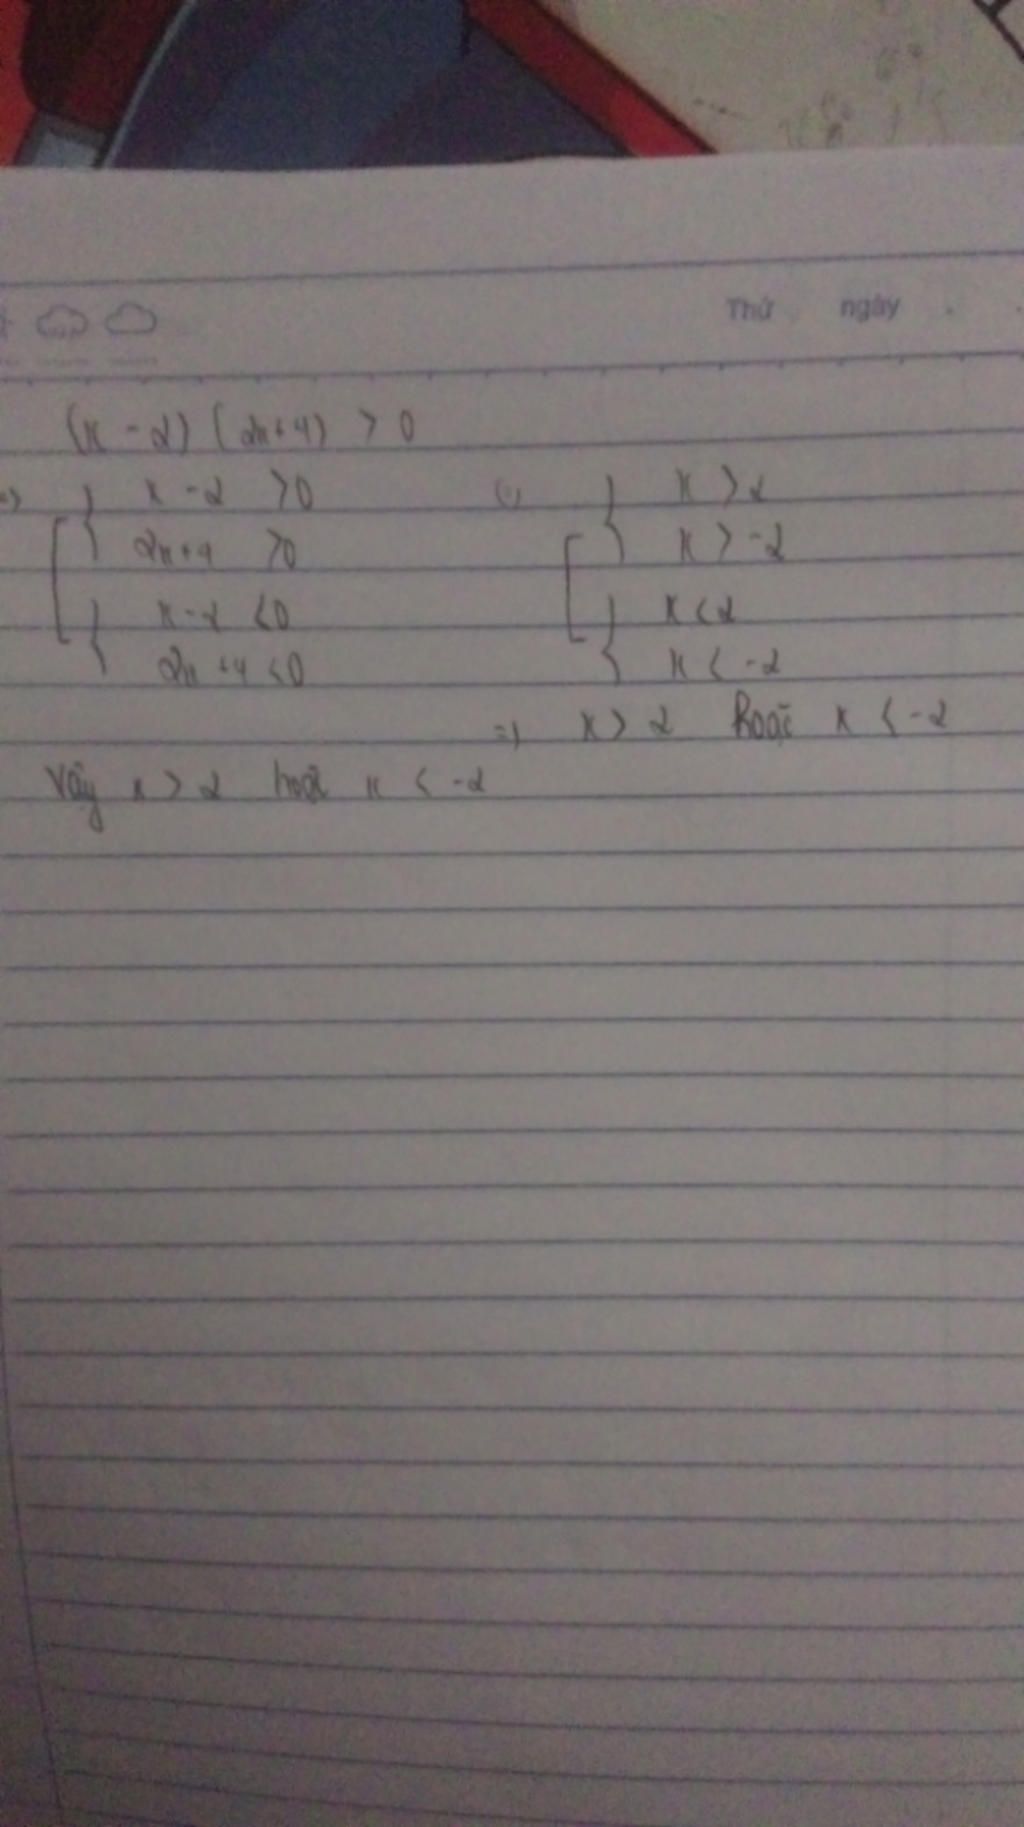 Thứ ngày
(x - 2) (2x+4) > 0
=> x - 2 > 0
2x+4 > 0
x - 2 < 0
2x + 4 < 0
(=) x > 2
x > -2
x < 2
x < -2
=) x > 2 hoặc x < -2
Vậy x > 2 hoặc x < -2